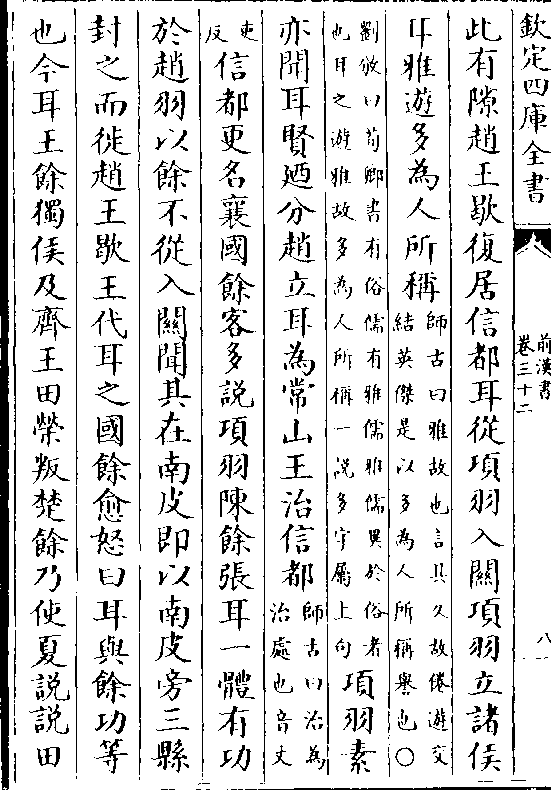 欽定四庫全書
前漢書
卷三十二
八
此有隙趙王歇復居信都耳從項羽入關項羽立諸侯
耳雅遊多為人所稱師古曰雅故也言其久故倦遊交
結英傑是以多為人所稱譽也〇
劉攽曰荀卿書有俗儒有雅儒雅儒異於俗者
也耳之遊雅故多為人所稱一說多字屬上句項羽素
亦聞耳賢廼分趙立耳為常山王治信都師古曰治為
治處也音丈
吏
反信都更名襄國餘客多説項羽陳餘張耳一體有功
於趙羽以餘不從入關聞其在南皮即以南皮旁三縣
封之而徙趙王歇王代耳之國餘愈怒曰耳與餘功等
也今耳王餘獨侯及齊王田榮叛楚餘乃使夏説説田